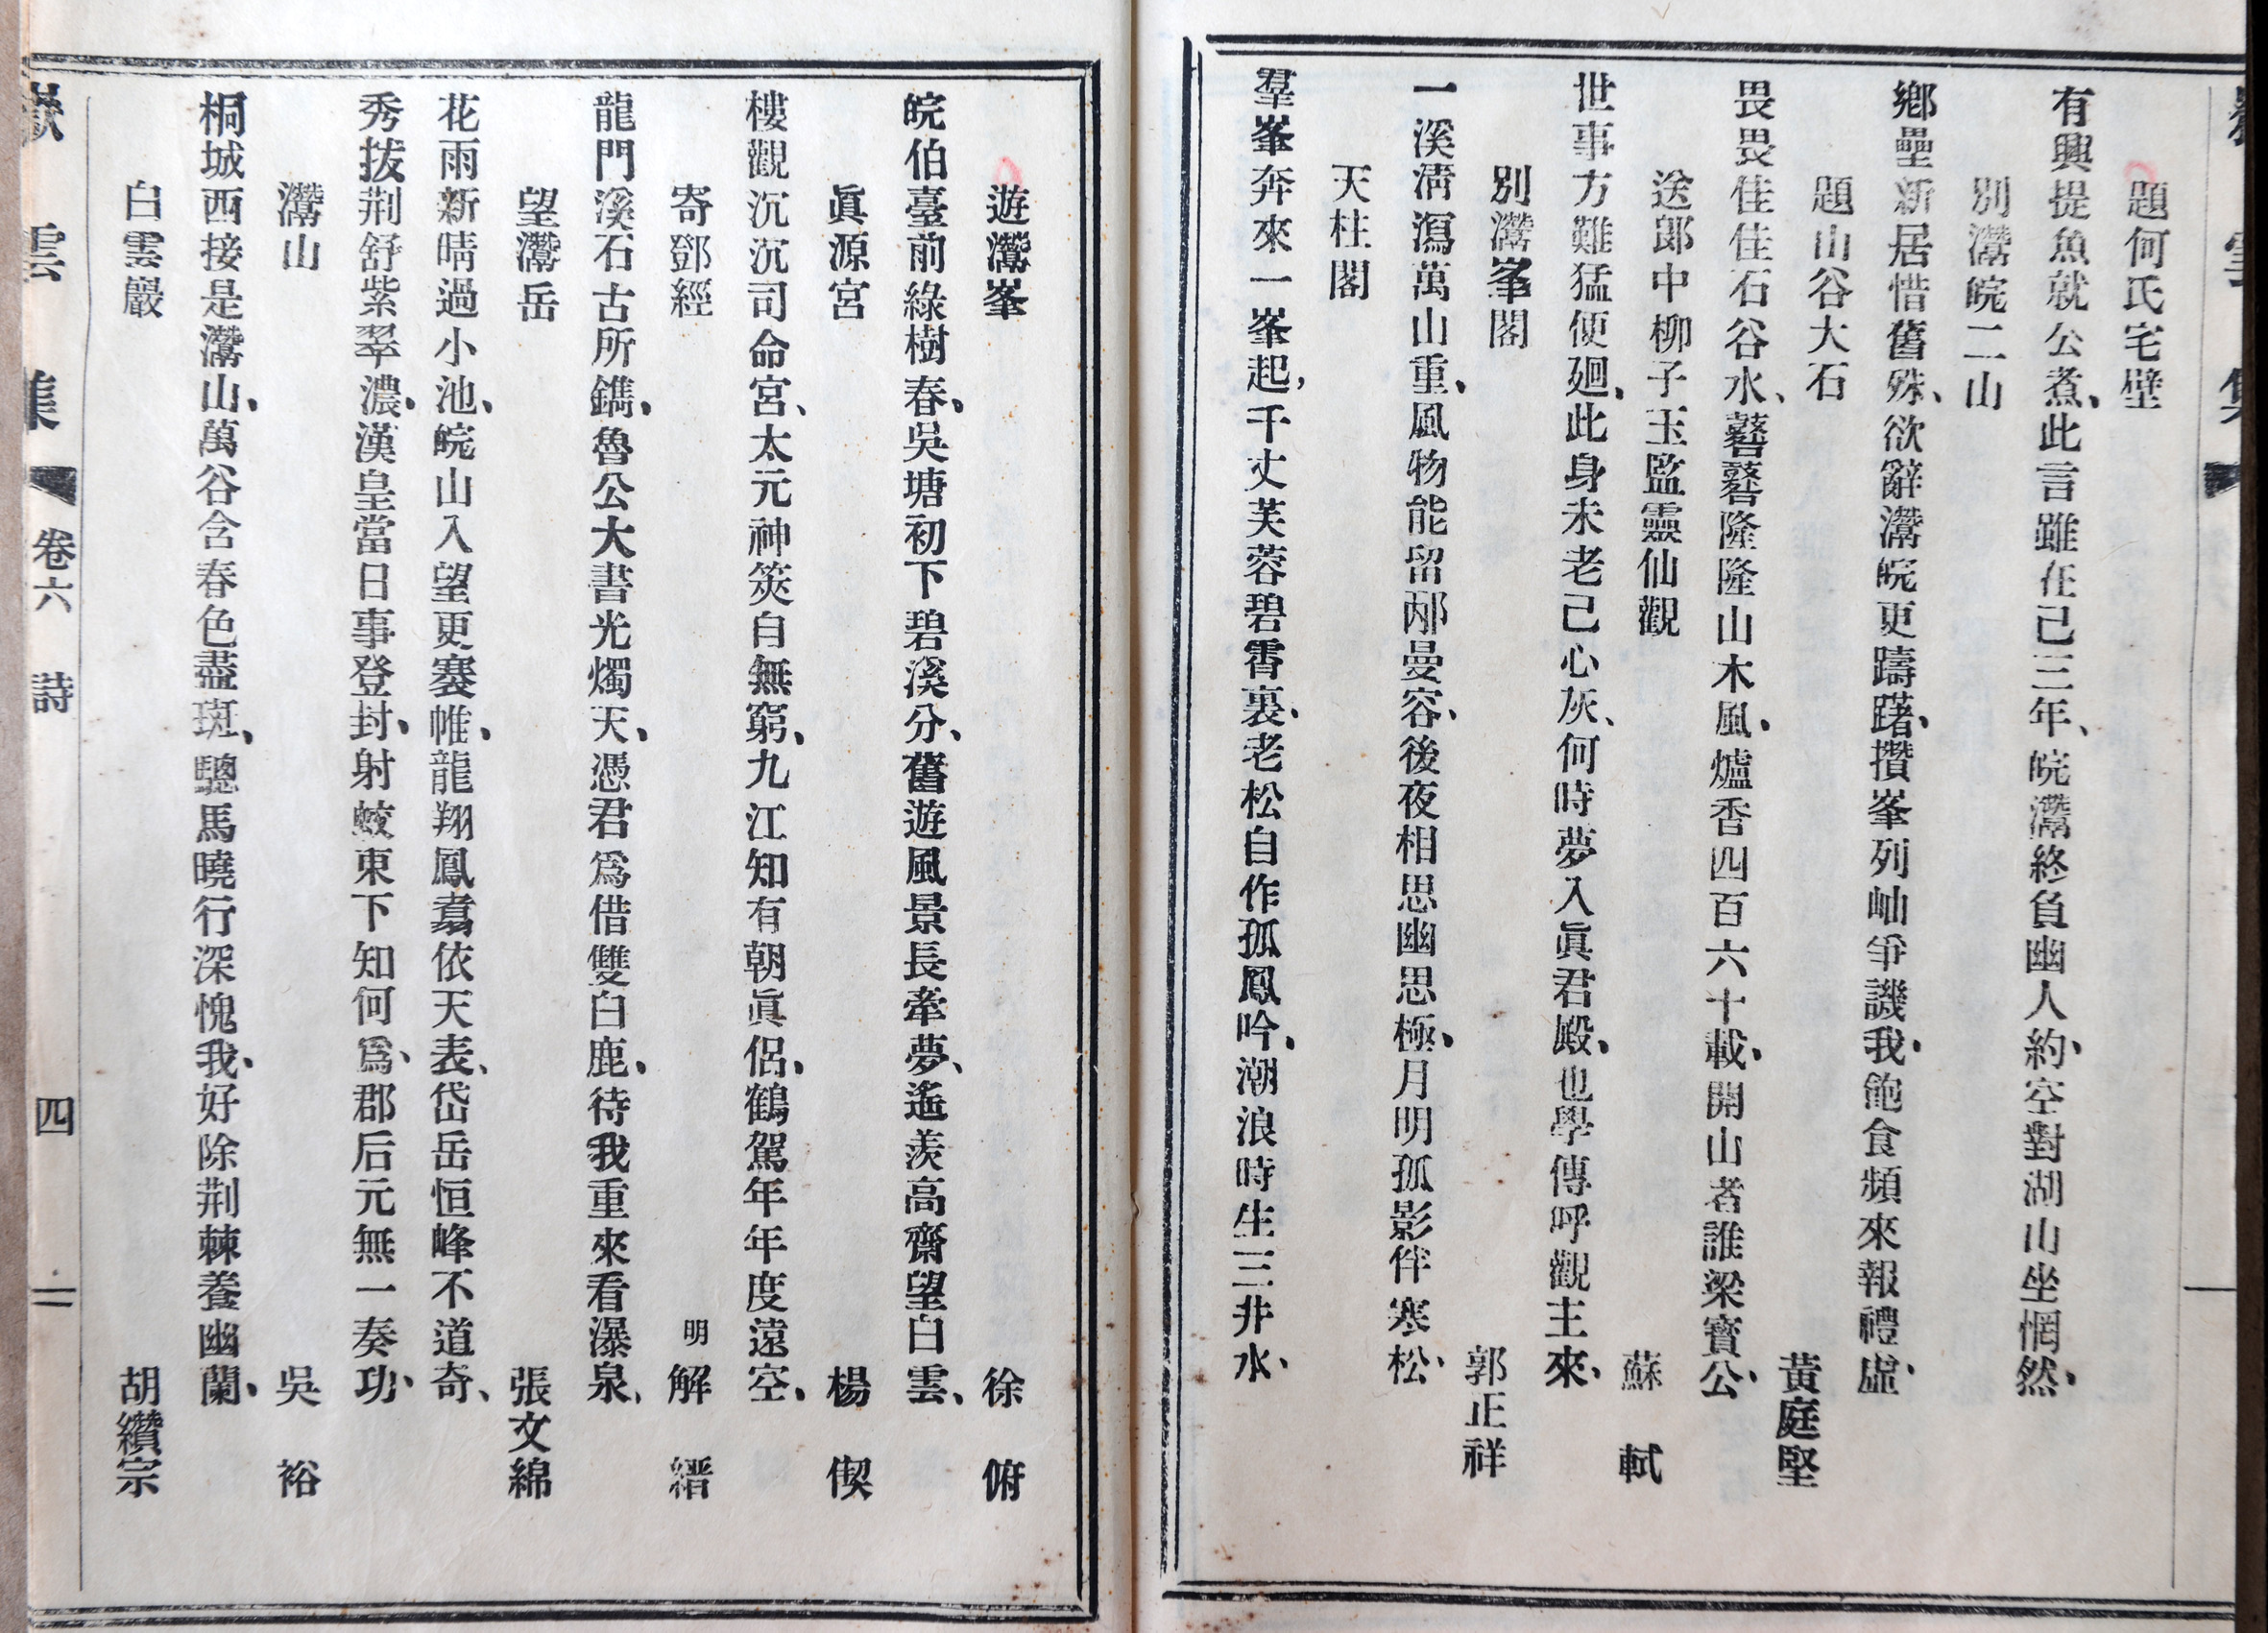 題何氏宅壁
有興提魚就公煮、此言雖在己三年、皖灊終負幽人約、空對湖山坐惘然、
別灊皖二山
鄉壘新居惜舊殊、欲辭灊皖更躊躇、攢峯列岫爭譏我、飽食頻來報禮虛、
題山谷大石 黃庭堅
畏畏佳佳石谷水、𧮪𧮪隆隆山木風、爐香四百六十載、開山者誰梁寶公、
送郎中柳子玉監靈仙觀 蘇軾
世事方難猛便廻、此身未老已心灰、何時夢入眞君殿、也學傳呼觀主來、
別灊峯閣 郭正祥
一溪淸瀉萬山重、風物能留邴曼容、後夜相思幽思極、月明孤影伴寒松、
天柱閣
羣峯奔來一峯起、千丈芙蓉碧霄裏、老松自作孤鳳吟、潮浪時生三井水、
遊灊峯 徐俯
皖伯臺前綠樹春、吳塘初下碧溪分、舊遊風景長牽夢、遙羨高齋望白雲、
眞源宮 楊偰
樓觀沉沉司命宮、太元神筴自無窮、九江知有朝眞侶、鶴駕年年度遠空、
寄鄧經 明 解縉
龍門溪石古所鐫、魯公大書光燭天、憑君爲借雙白鹿、待我重來看瀑泉、
望灊岳 張文綿
花雨新晴過小池、皖山入望更褰帷、龍翔鳳翥依天表、岱岳恒峰不道奇、
秀拔荆舒紫翠濃、漢皇當日事登封、射蛟東下知何爲、郡后元無一奏功、
灊山 吳裕
桐城西接是灊山、萬谷含春色盡斑、驄馬曉行深愧我、好除荆棘養幽蘭、
白雲巖 胡纘宗
雲集 卷六 詩 四